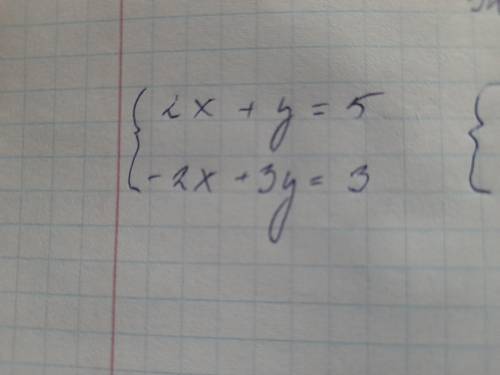 { 2x + y = 5
-2x + 3y = 3